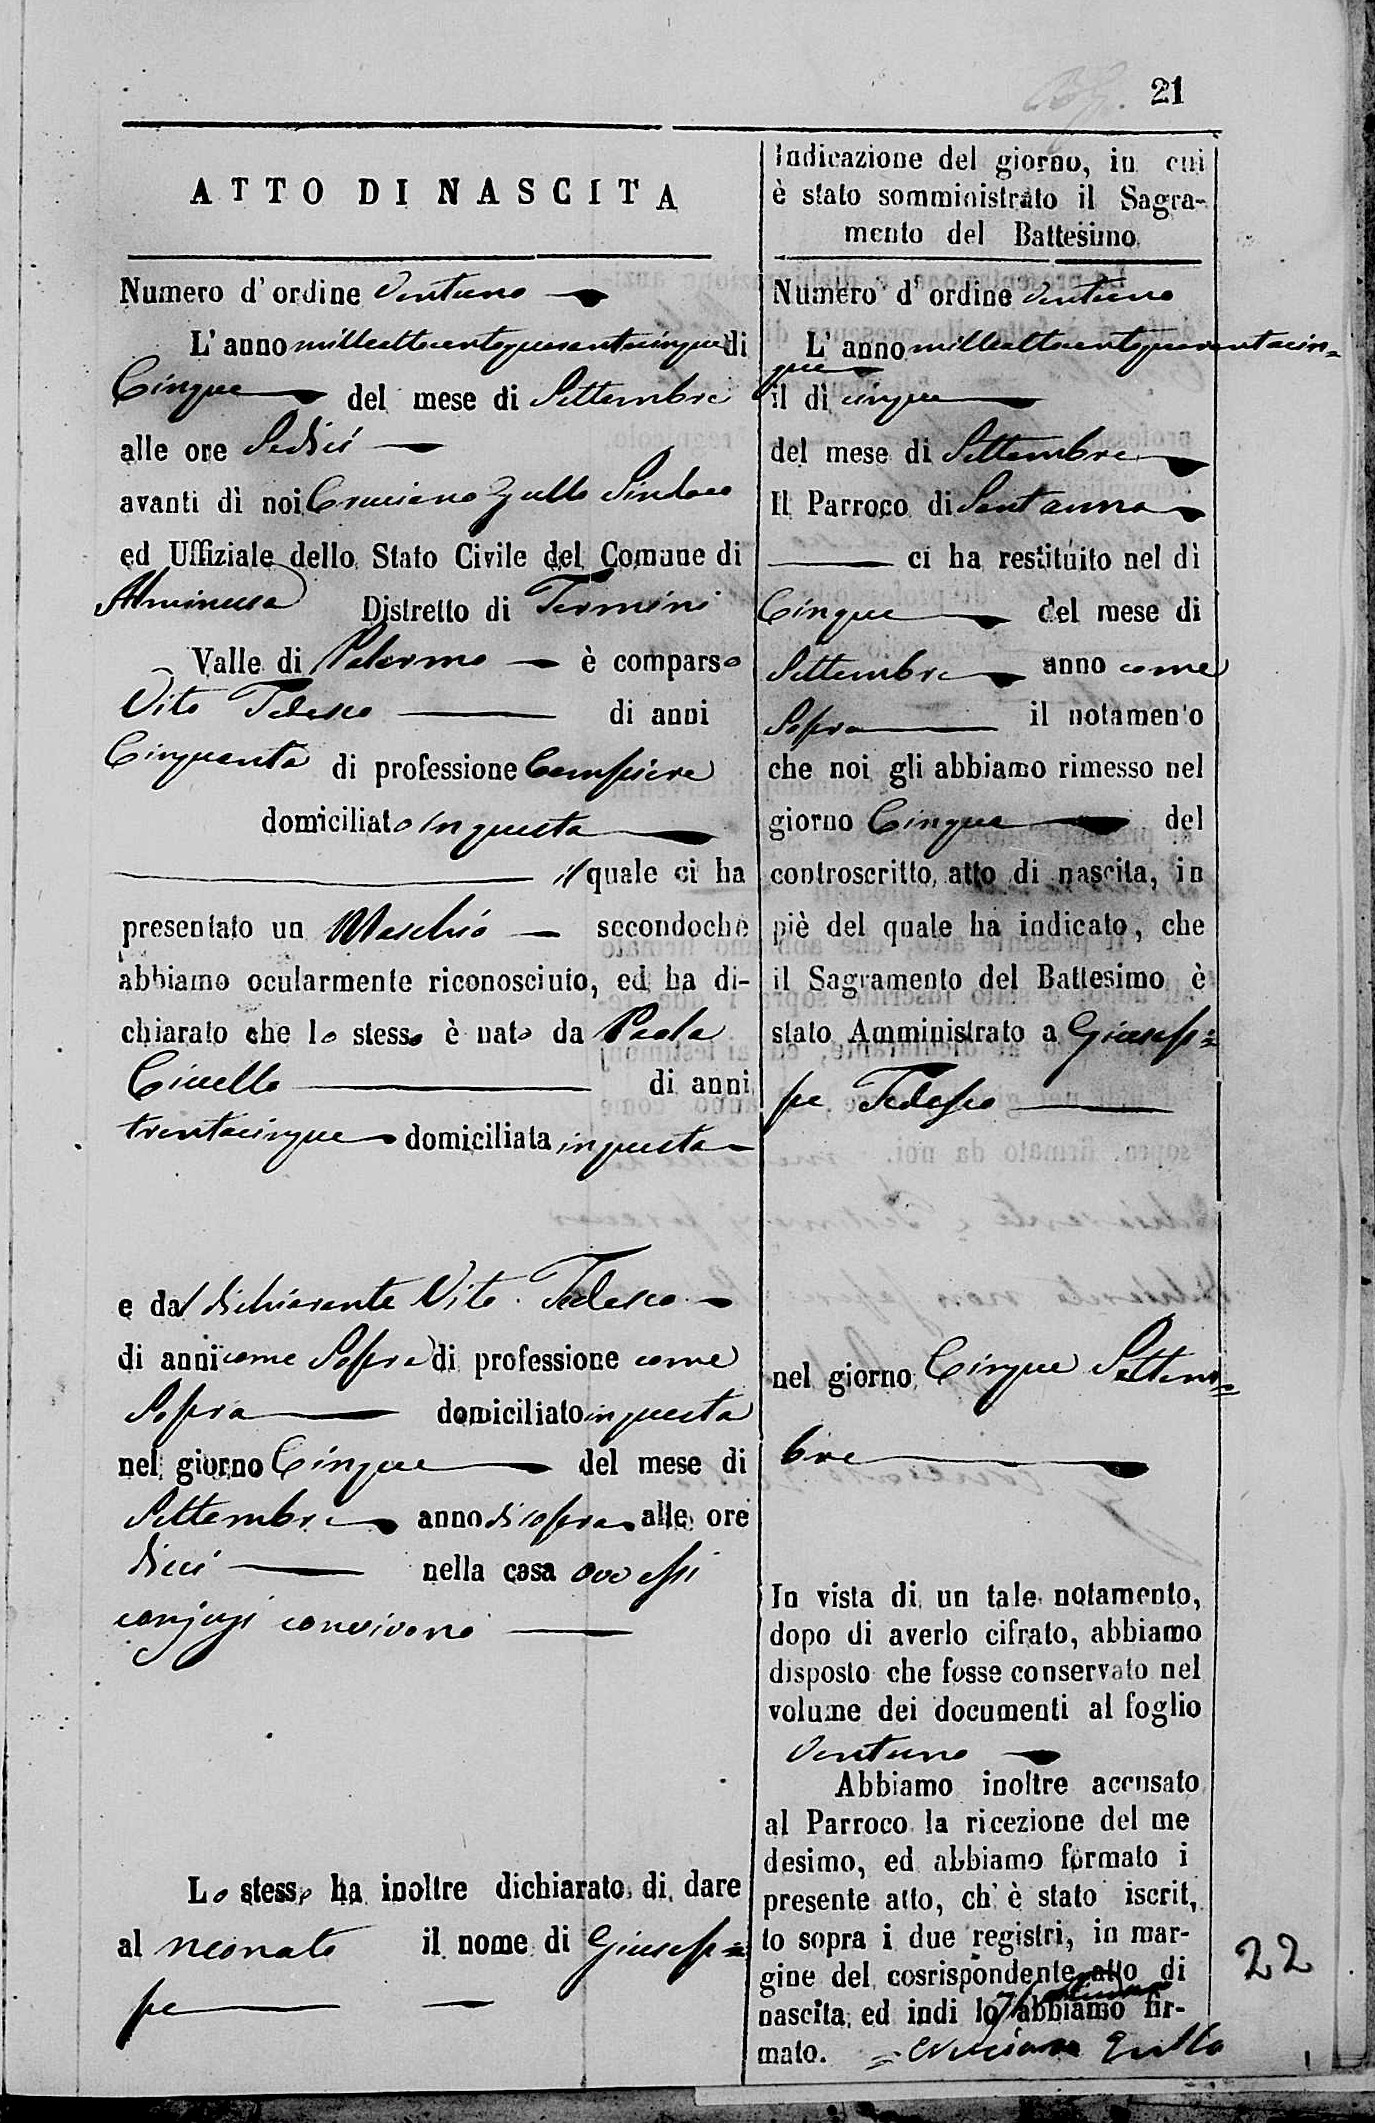 21
ATTO DI NASCITA
Numero d'ordine Ventuno
L'anno milleottocentoquarantacinque di
Cinque del mese di Settembre
alle ore Sedici
avanti di noi Cruciano Zullo Sindaco
ed Uffiziale dello Stato Civile del Comune di
Alminusa Distretto di Termini
Valle di Palermo è comparso
Vito Tedesco di anni
Cinquanta di professione Campiere
domiciliato in questa
il quale ci ha
presentato un Maschio secondochè
abbiamo ocularmente riconosciuto, ed ha di-
chiarato che lo stesso è nato da Paola
di anni
trentacinque domiciliata in questa
e dal dichiarante Vito Tedesco
di anni come Sopra di professione come
Sopra domiciliato in questa
nel giorno Cinque del mese di
Settembre anno di sopra alle ore
dieci nella casa ove essi
conjugi convivono
Lo stesso ha inoltre dichiarato di dare
al neonato il nome di Giusep=
pe
Indicazione del giorno, in cui
è stato somministrato il Sagra-
mento del Battesimo
Numero d'ordine Ventuno
L'anno milleottocentoquarantacin=
que
il dì cinque
del mese di Settembre
Il Parroco di Sant'anna
ci ha restituito nel dì
Cinque del mese di
Settembre anno come
Sopra il notamento
che noi gli abbiamo rimesso nel
giorno Cinque del
controscritto atto di nascita, in
piè del quale ha indicato, che
il Sagramento del Battesimo è
stato Amministrato a Giusep=
pe Tedesco
nel giorno Cinque Settem=
bre
In vista di un tale notamento,
dopo di averlo cifrato, abbiamo
disposto che fosse conservato nel
volume dei documenti al foglio
Ventuno
Abbiamo inoltre accusato
al Parroco la ricezione del me
desimo, ed abbiamo formato i
presente atto, ch' è stato iscrit,
to sopra i due registri, in mar-
gine del cosrispondente atto di
nascita, ed indi lo abbiamo fir-
mato. = Cruciano Zullo
22